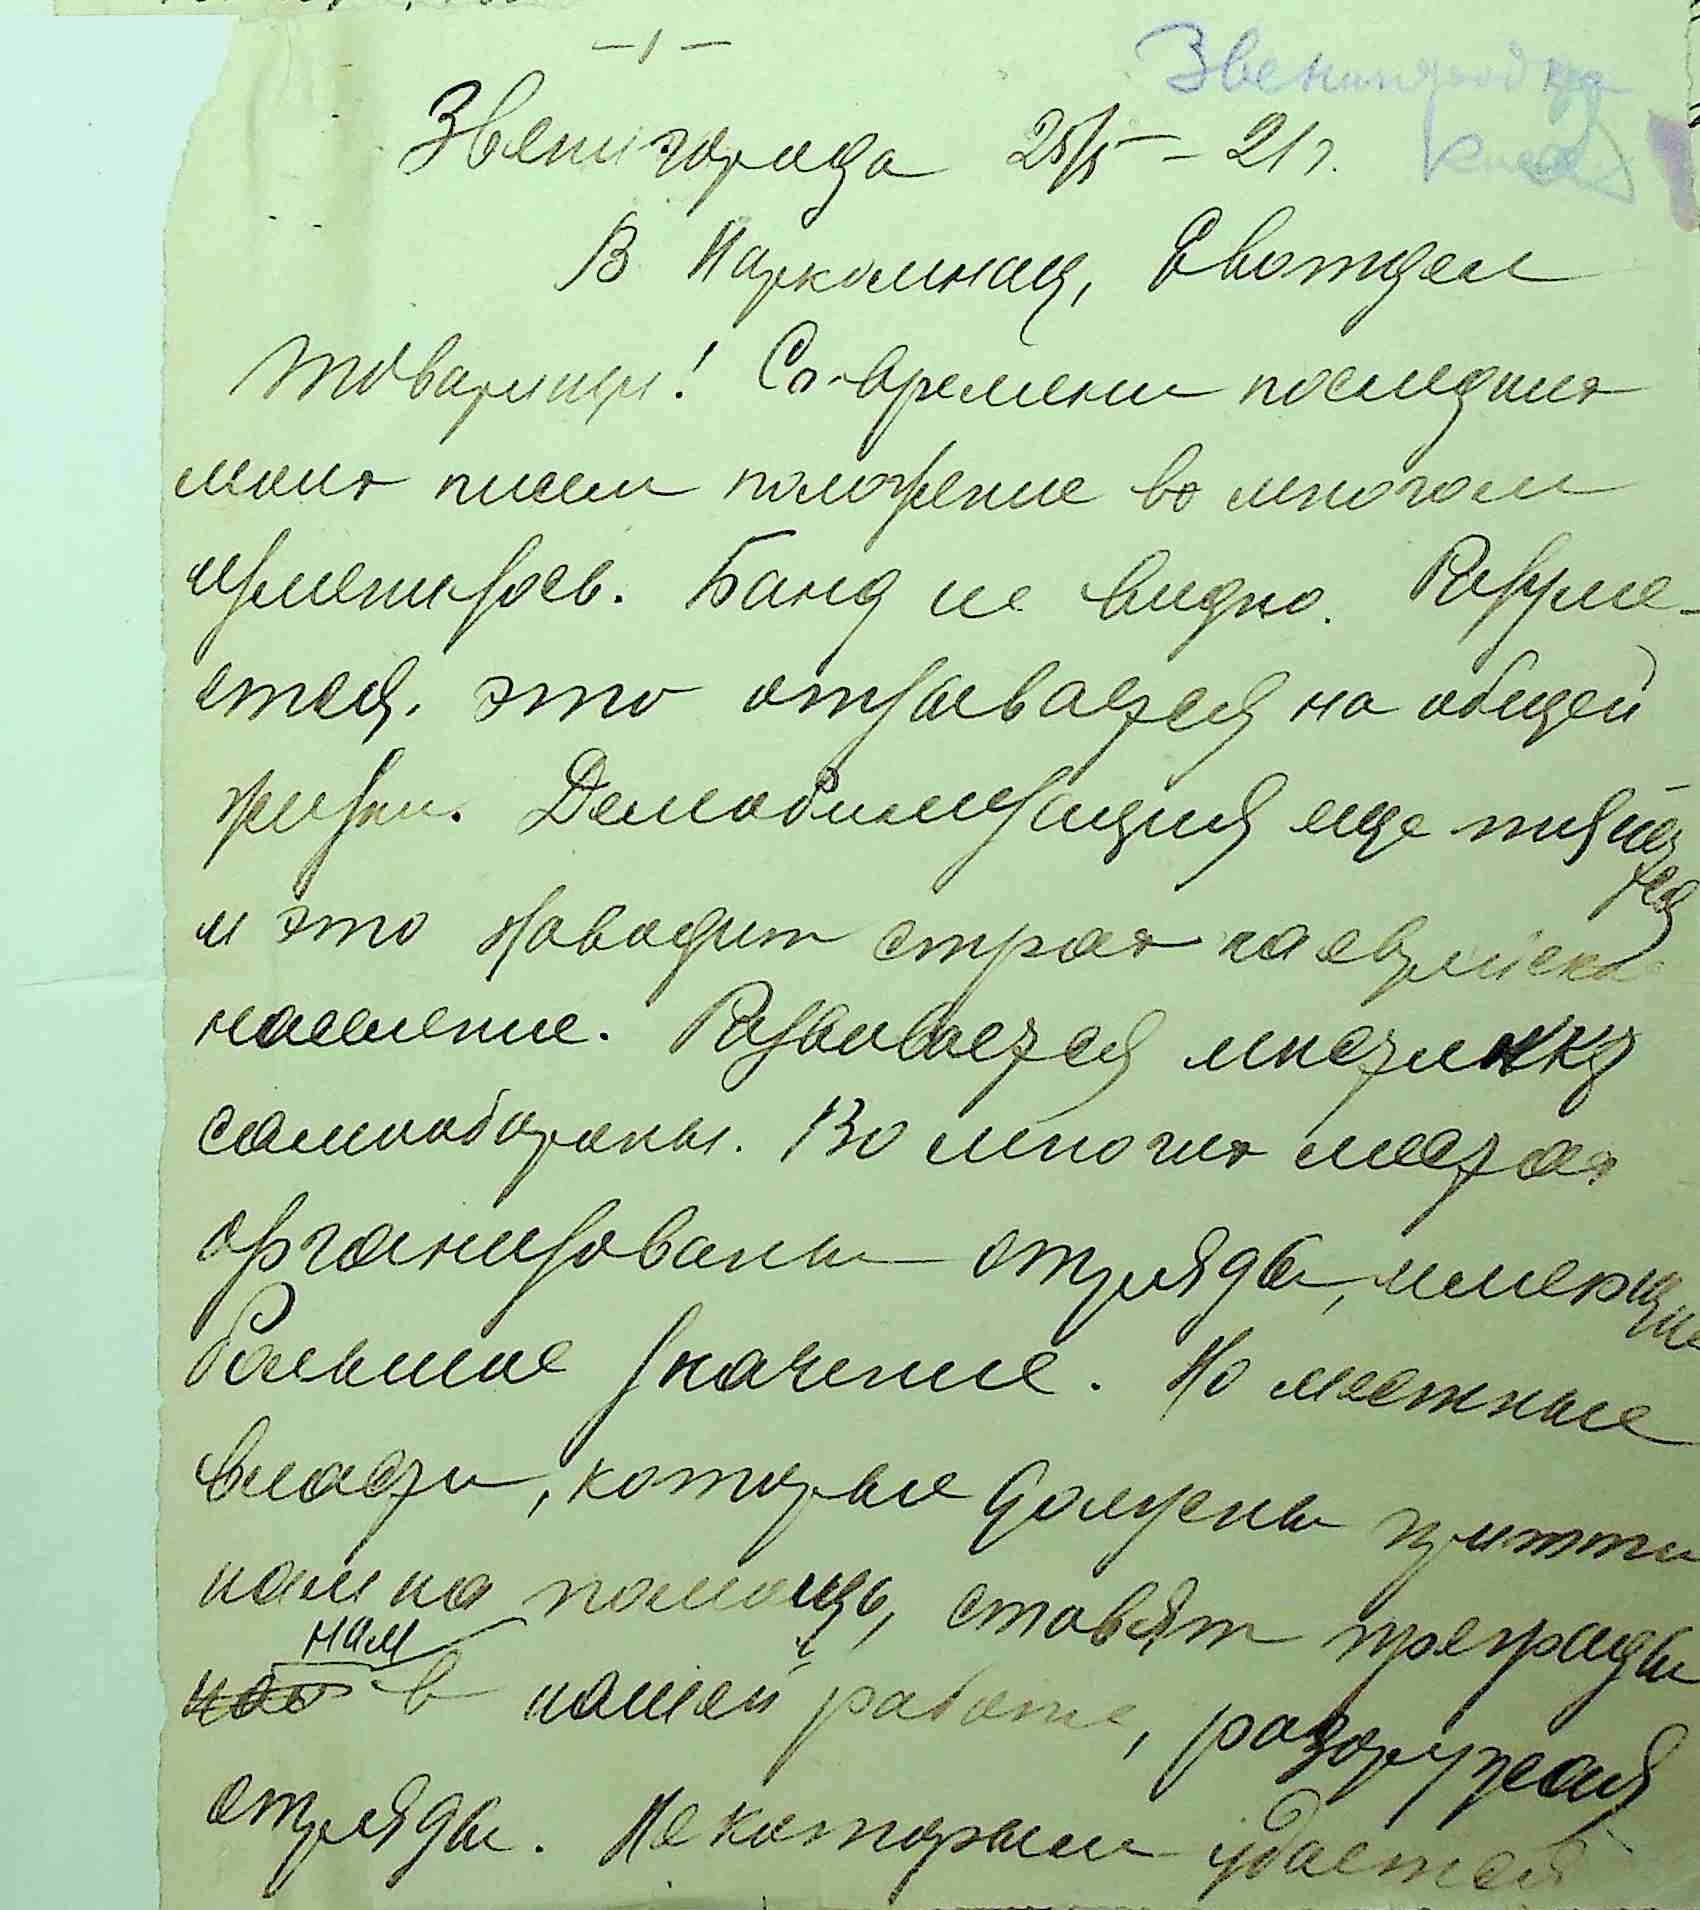 — 1 —
Звенигородка
Киев
Звенигорода 25/X – 21 г.
В Наркомнац, Евотдел
Товарищи! Со времени последних
моих писем положение во многом
изменилось. Банд не видно. Разуме-
ется, это отзывается на общей
жизни. Демобилизация еще тянет
ся
и это наводит страх на еврейское
население. Развивается
самообороны. Во многих местах
организованы отряды, имеющие
большие значение. Но местные
власти, которые должны притти
нам на помощь, ставят преграды
нам
нас в нашей работе, разоружая
отряды. Некоторым удается